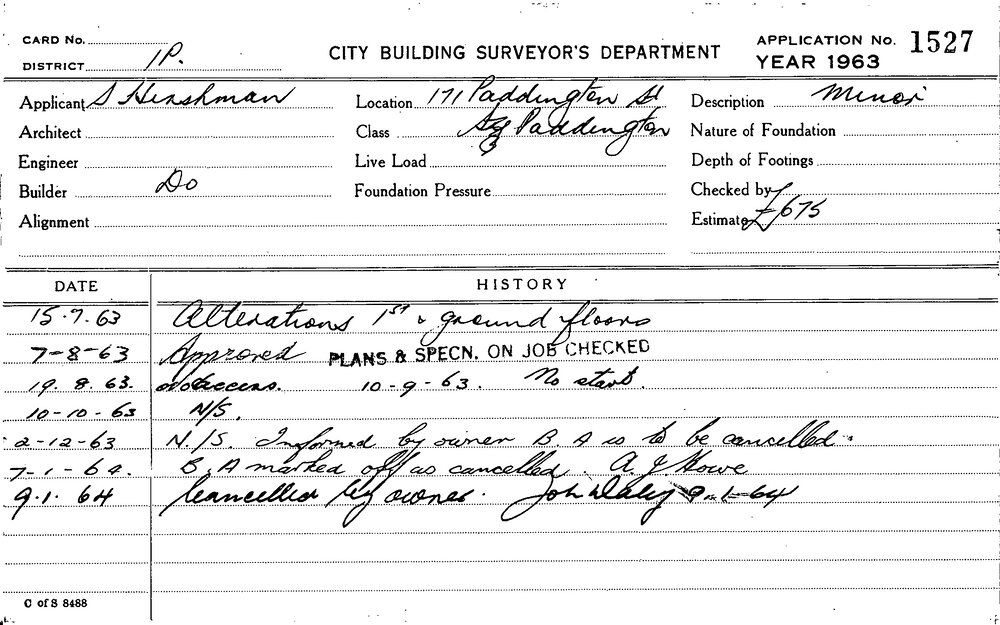 CARD No.
DISTRICT 1P.
CITY BUILDING SURVEYOR'S DEPARTMENT
APPLICATION No. 1527
YEAR 1963
Applicant S Hirshman
Location 171 Paddington St
Description Minor
Architect
Class Paddington
Nature of Foundation
Engineer
Live Load
Depth of Footings
Builder Do
Foundation Pressure
Checked by
Alignment
Estimate £675
DATE HISTORY
15.7.63 Alterations 1st & ground floors
7-8-63 Approved PLANS & SPECN. ON JOB CHECKED
19.8.63. No access. 10-9-63. No start.
10-10-63 N/S.
2-12-63 N./S. Informed by owner B A is to be cancelled.
7-1-64. B.A marked off as cancelled. A. J Howe
9.1.64 Cancelled by owner. John Daly 9-1-64
C of S 8488